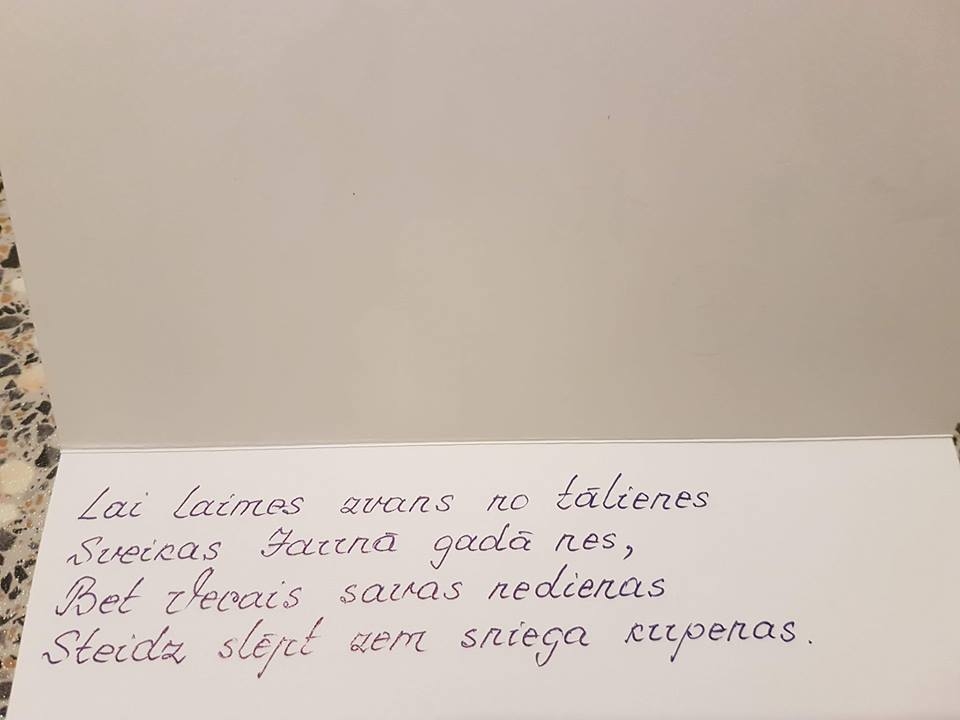 Lai laimes zvans no tālienes
Sveikas Jaunā gadā nes,
Bet Vecais savas nedienas
Steidz slēpt zem sniega kupenas.